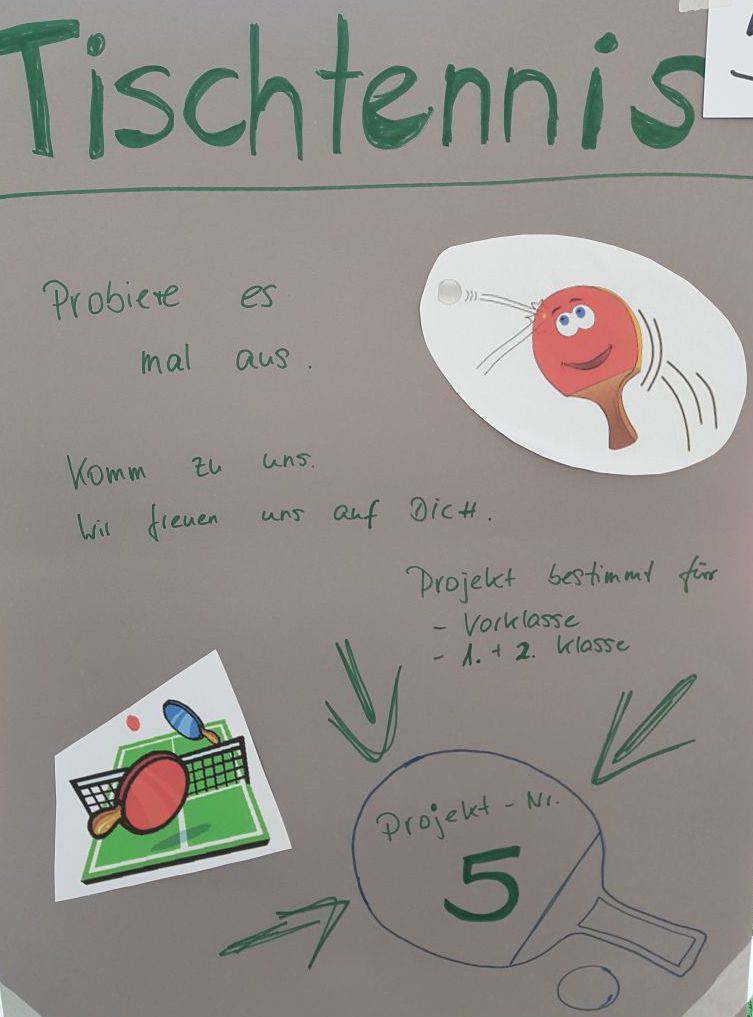 Tischtennis
Probiere es
mal aus.
Komm zu uns.
Wir freuen uns auf DicH.
Projekt bestimmt für
- Vorklasse
- 1. + 2. Klasse
Projekt - Nr.
5